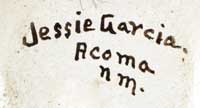 Jessie Garcia.
Acoma
nm.